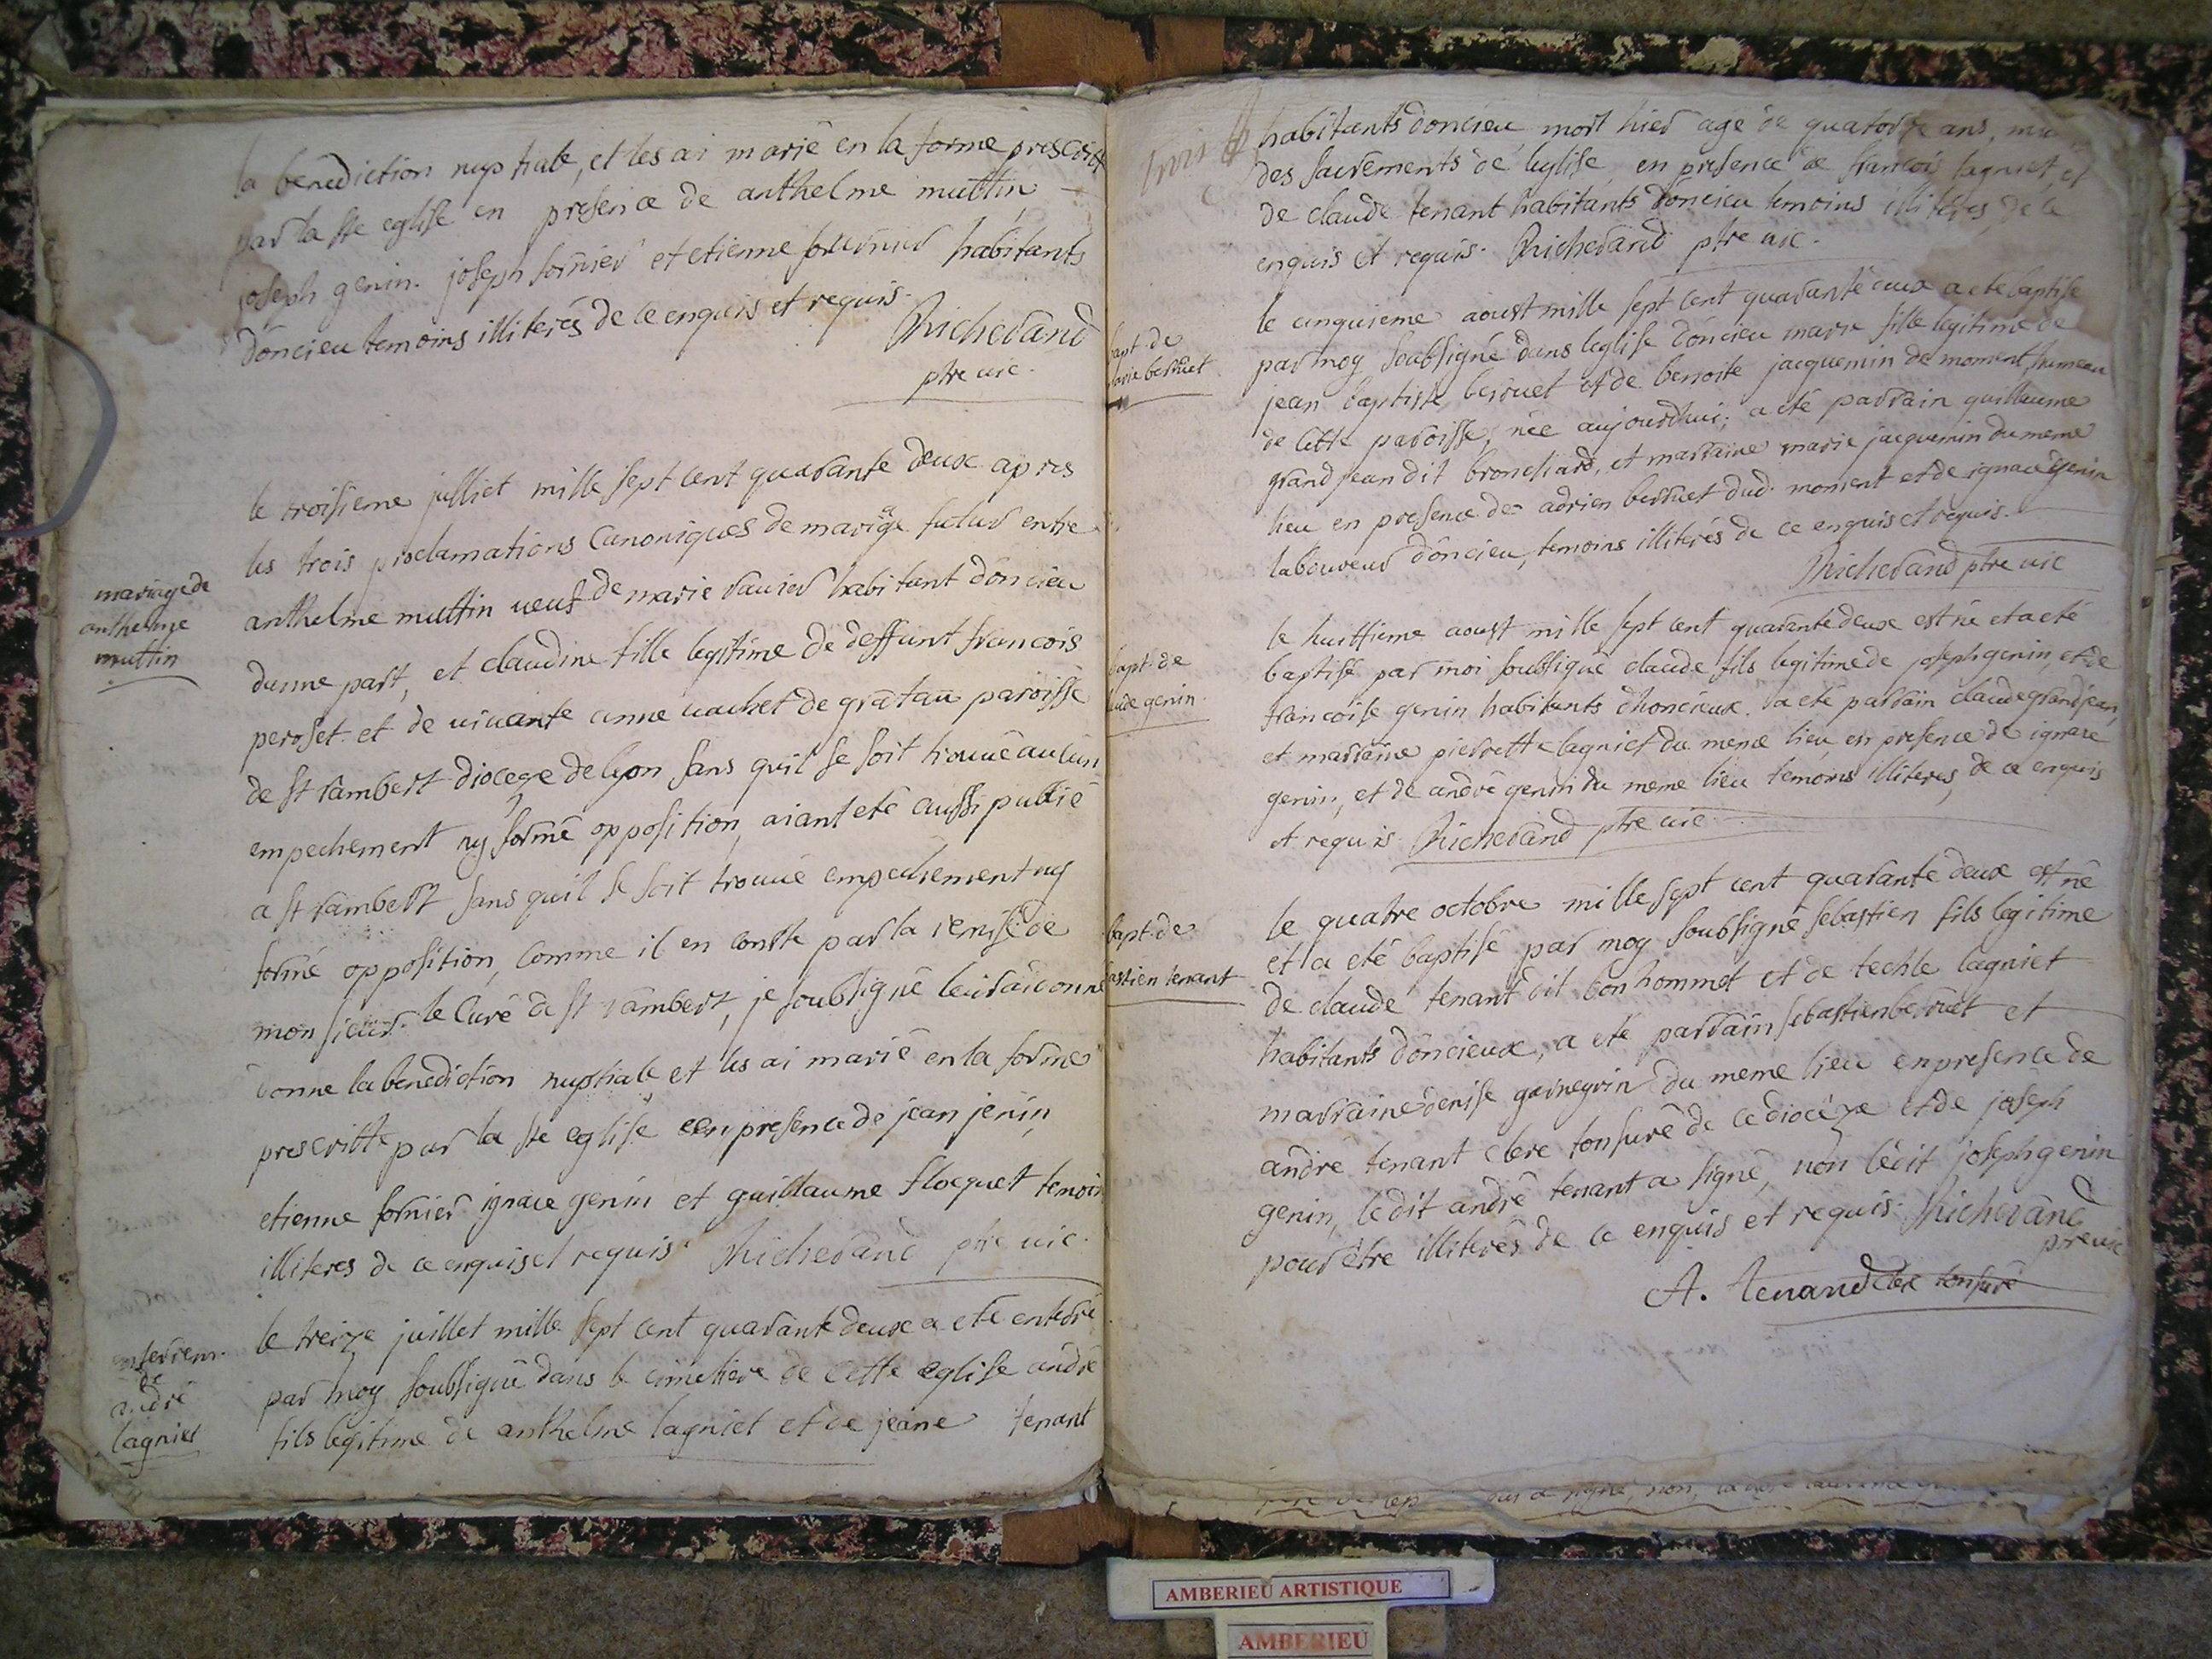 la benediction nuptiale, et les ai marié en la forme prescritte
par la ste eglise en presence de anthelme muttin
joseph genin. joseph fornier et etienne fournier habitants
doncieu temoins illiterés de ce enquis et requis.
Richerand
ptre vic.
mariage de
anthelme
muttin
le troisieme juilliet mille sept cent quarante deux apres
les trois proclamations canoniques de mariage futur entre
anthelme muttin veuf de marie ravier habitant doncieu
dunne part, et claudine fille legitime de deffunt francois
peroset et de vivante anne vachet de gratau paroisse
de st rambert diocege de lyon sans quil se soit trouvé aucun
empechement ny formé opposition, aiant eté aussi publié
a st rambert sans quil se soit trouvé empechement ny
formé opposition, comme il en conste par la remise de
monsieur le Curé de st rambert, je soubsigné leur ai donné
donne la benediction nuptiale et les ai marié en la forme
prescritte par la ste eglise en presence de jean jenin,
etienne fornier ignace genin et guillaume floquet temoin
illiteres de ce enquis et requis. Richerand ptre vic.
enterrem.
de
andré
lagniet
le treize juillet mille sept cent quarante deux a eté enterré
par moy soubsigné dans le cimetiere de cette eglise andré
fils legitime de anthelme lagniet et de jeane tenant
trois
habitants doncieu mort hier agé de quatorze ans, mu
des sacrements de leglise, en presence de francois lagniet, et
de claude tenant habitants doncieu temoins illiterés, de ce
enquis et requis. Richerand ptre vic.
bapt. de
marie berruet
le cinquieme aoust mille sept cent quarante deux a ete baptisé
par moy soubsigné dans leglise doncieu marie fille legitime de
jean baptiste berruet et de benoite jacquemin de moment hameau
de cette paroisse, née aujourdhui; a eté parrain guillaume
grand jean dit bronchard, et marraine marie jacquemin du meme
lieu en presence de adrien berruet dud. moment et de ignace genin
laboureur doncieu, temoins illiterés de ce enquis et requis.
Richerand ptre vic
bapt. de
claude genin.
le huittieme aoust mille sept cent quarante deux est né et a eté
baptisé par moi soubsigné claude fils legitime de joseph genin, et de
francoise genin habitants dhoncieux. a eté parrain claude grand jean,
et marraine pierrette lagniet du meme lieu en presence de ignace
genin, et de andré genin du meme lieu temoins illiteres, de ce enquis
et requis. Richerand ptre vic
bapt. de
sebastien tenant
le quatre octobre mille sept cent quarante deux est né
et a eté baptisé par moy soubsigné sebastien fils legitime
de claude tenant dit bonhommet et de techle lagniet
habitants doncieux, a eté parrain sebastien berruet et
marraine denise guinegrin du meme lieu en presence de
andre tenant clerc tonsuré de ce diocèze et de joseph
genin, le dit andré tenant a signé, non ledit joseph genin
pour être illiterés de ce enquis et requis. Richerand
ptre vic
A. tenand clerc tonsuré
a signé, non,
AMBERIEU ARTISTIQUE
AMBERIEU